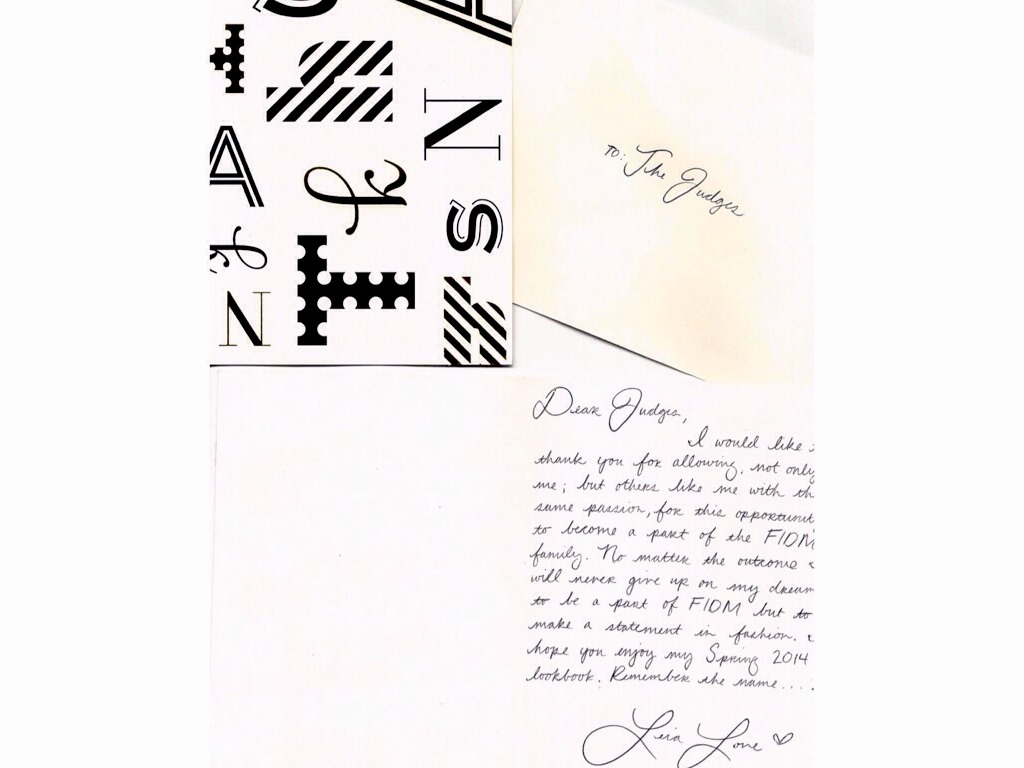 S A
T h N
A k S
k
N T h
TO: The Judges
Dear Judges,
I would like
thank you for allowing, not only
me; but others like me with th
same passion, for this opportunit
to become a part of the FIDM
family. No matter the outcome
will never give up on my dream
to be a part of FIDM but to
make a statement in fashion.
hope you enjoy my Spring 2014
lookbook. Remember the name....
Leia Love